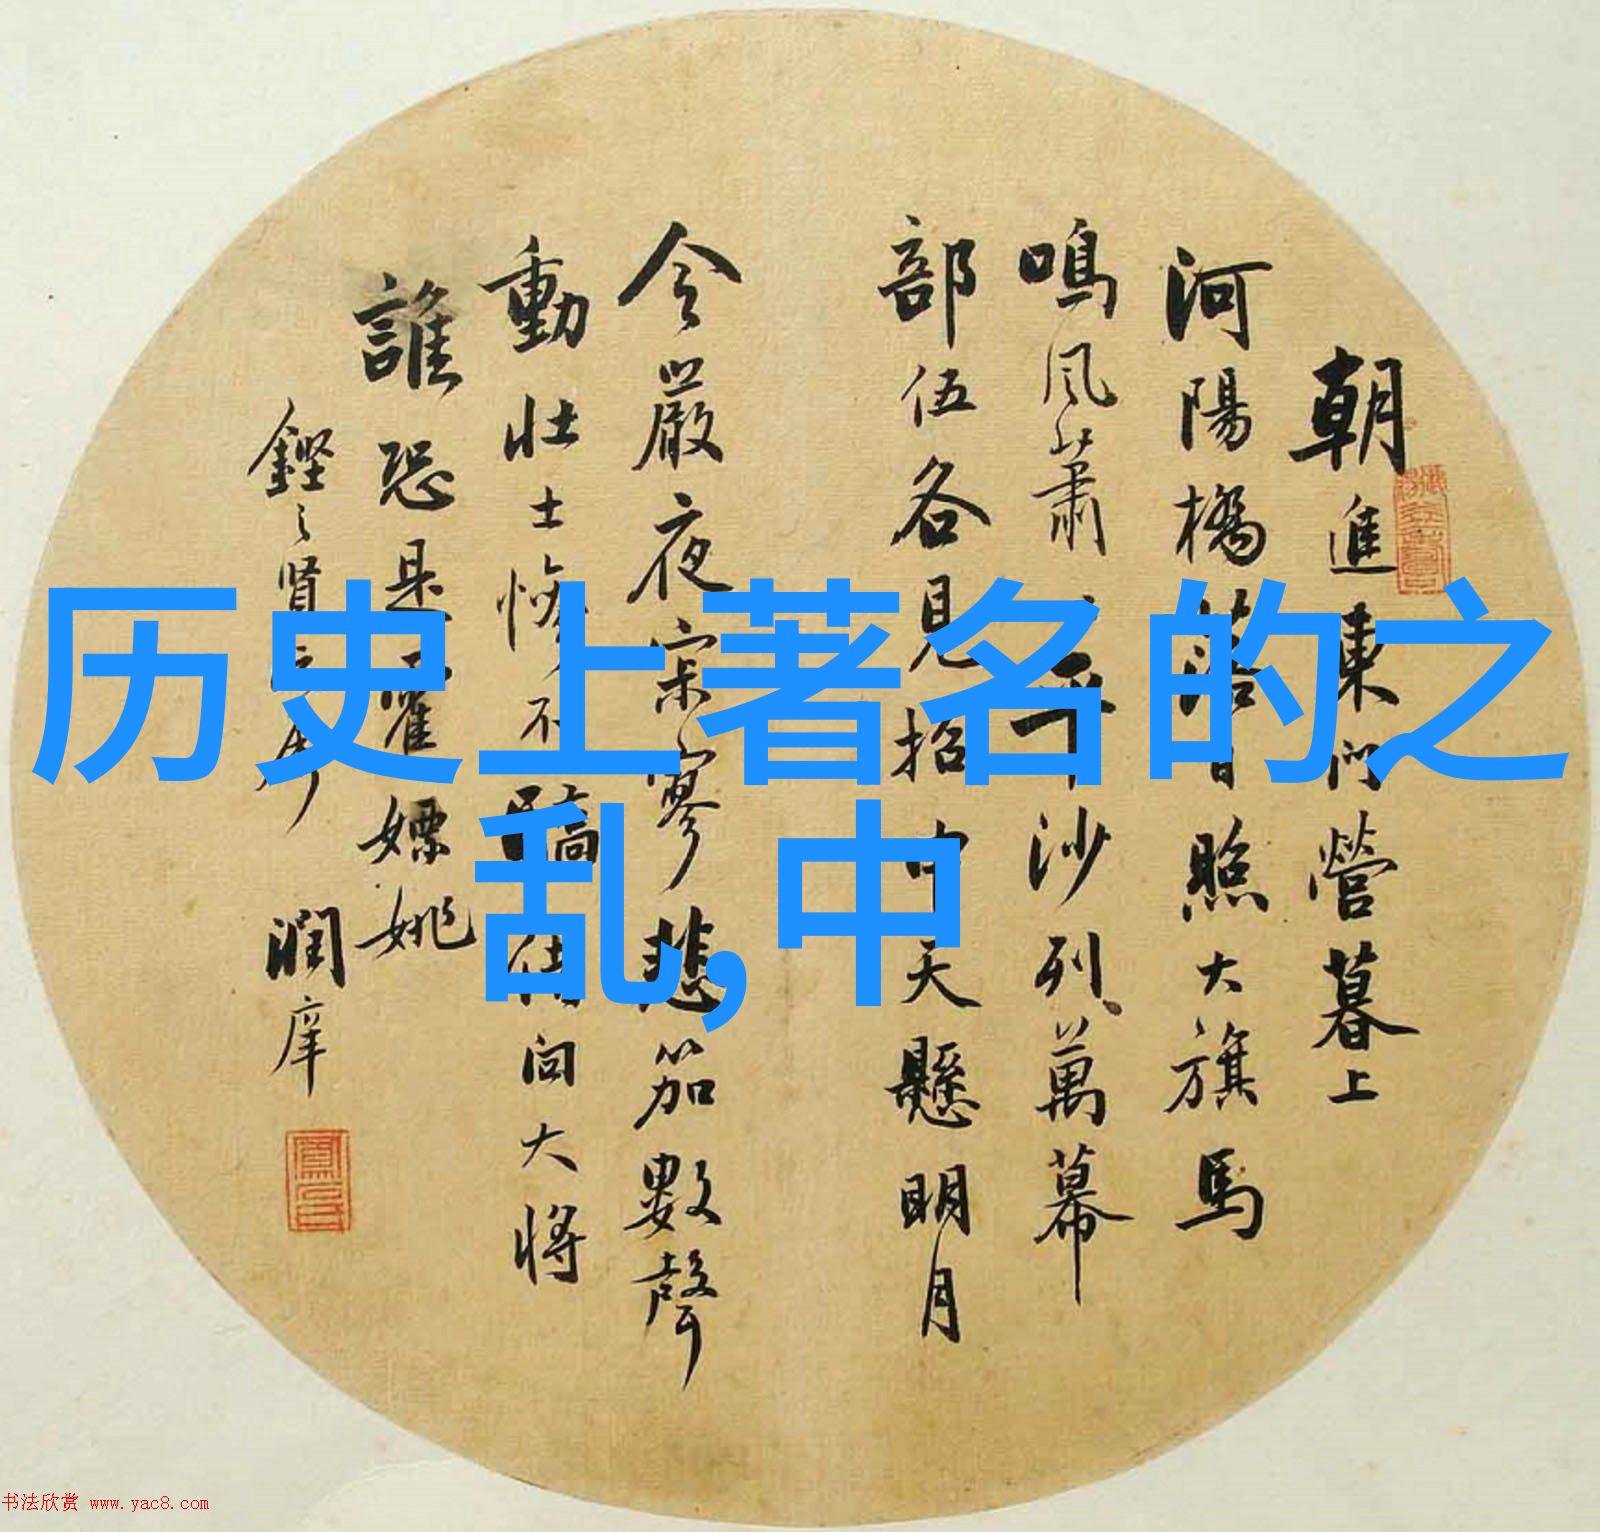 历史上著名的之
乱,中
朝進東门營暮上
河陽橋落日照大旗馬
鳴風蕭平沙列萬幕
部伍各見招中天懸明月
令嚴夜寂寥悲笳數聲
動壯士慘不驕借问大將
誰恐是霍嫖姚
潤庠
书法欣赏 www.yac8.com